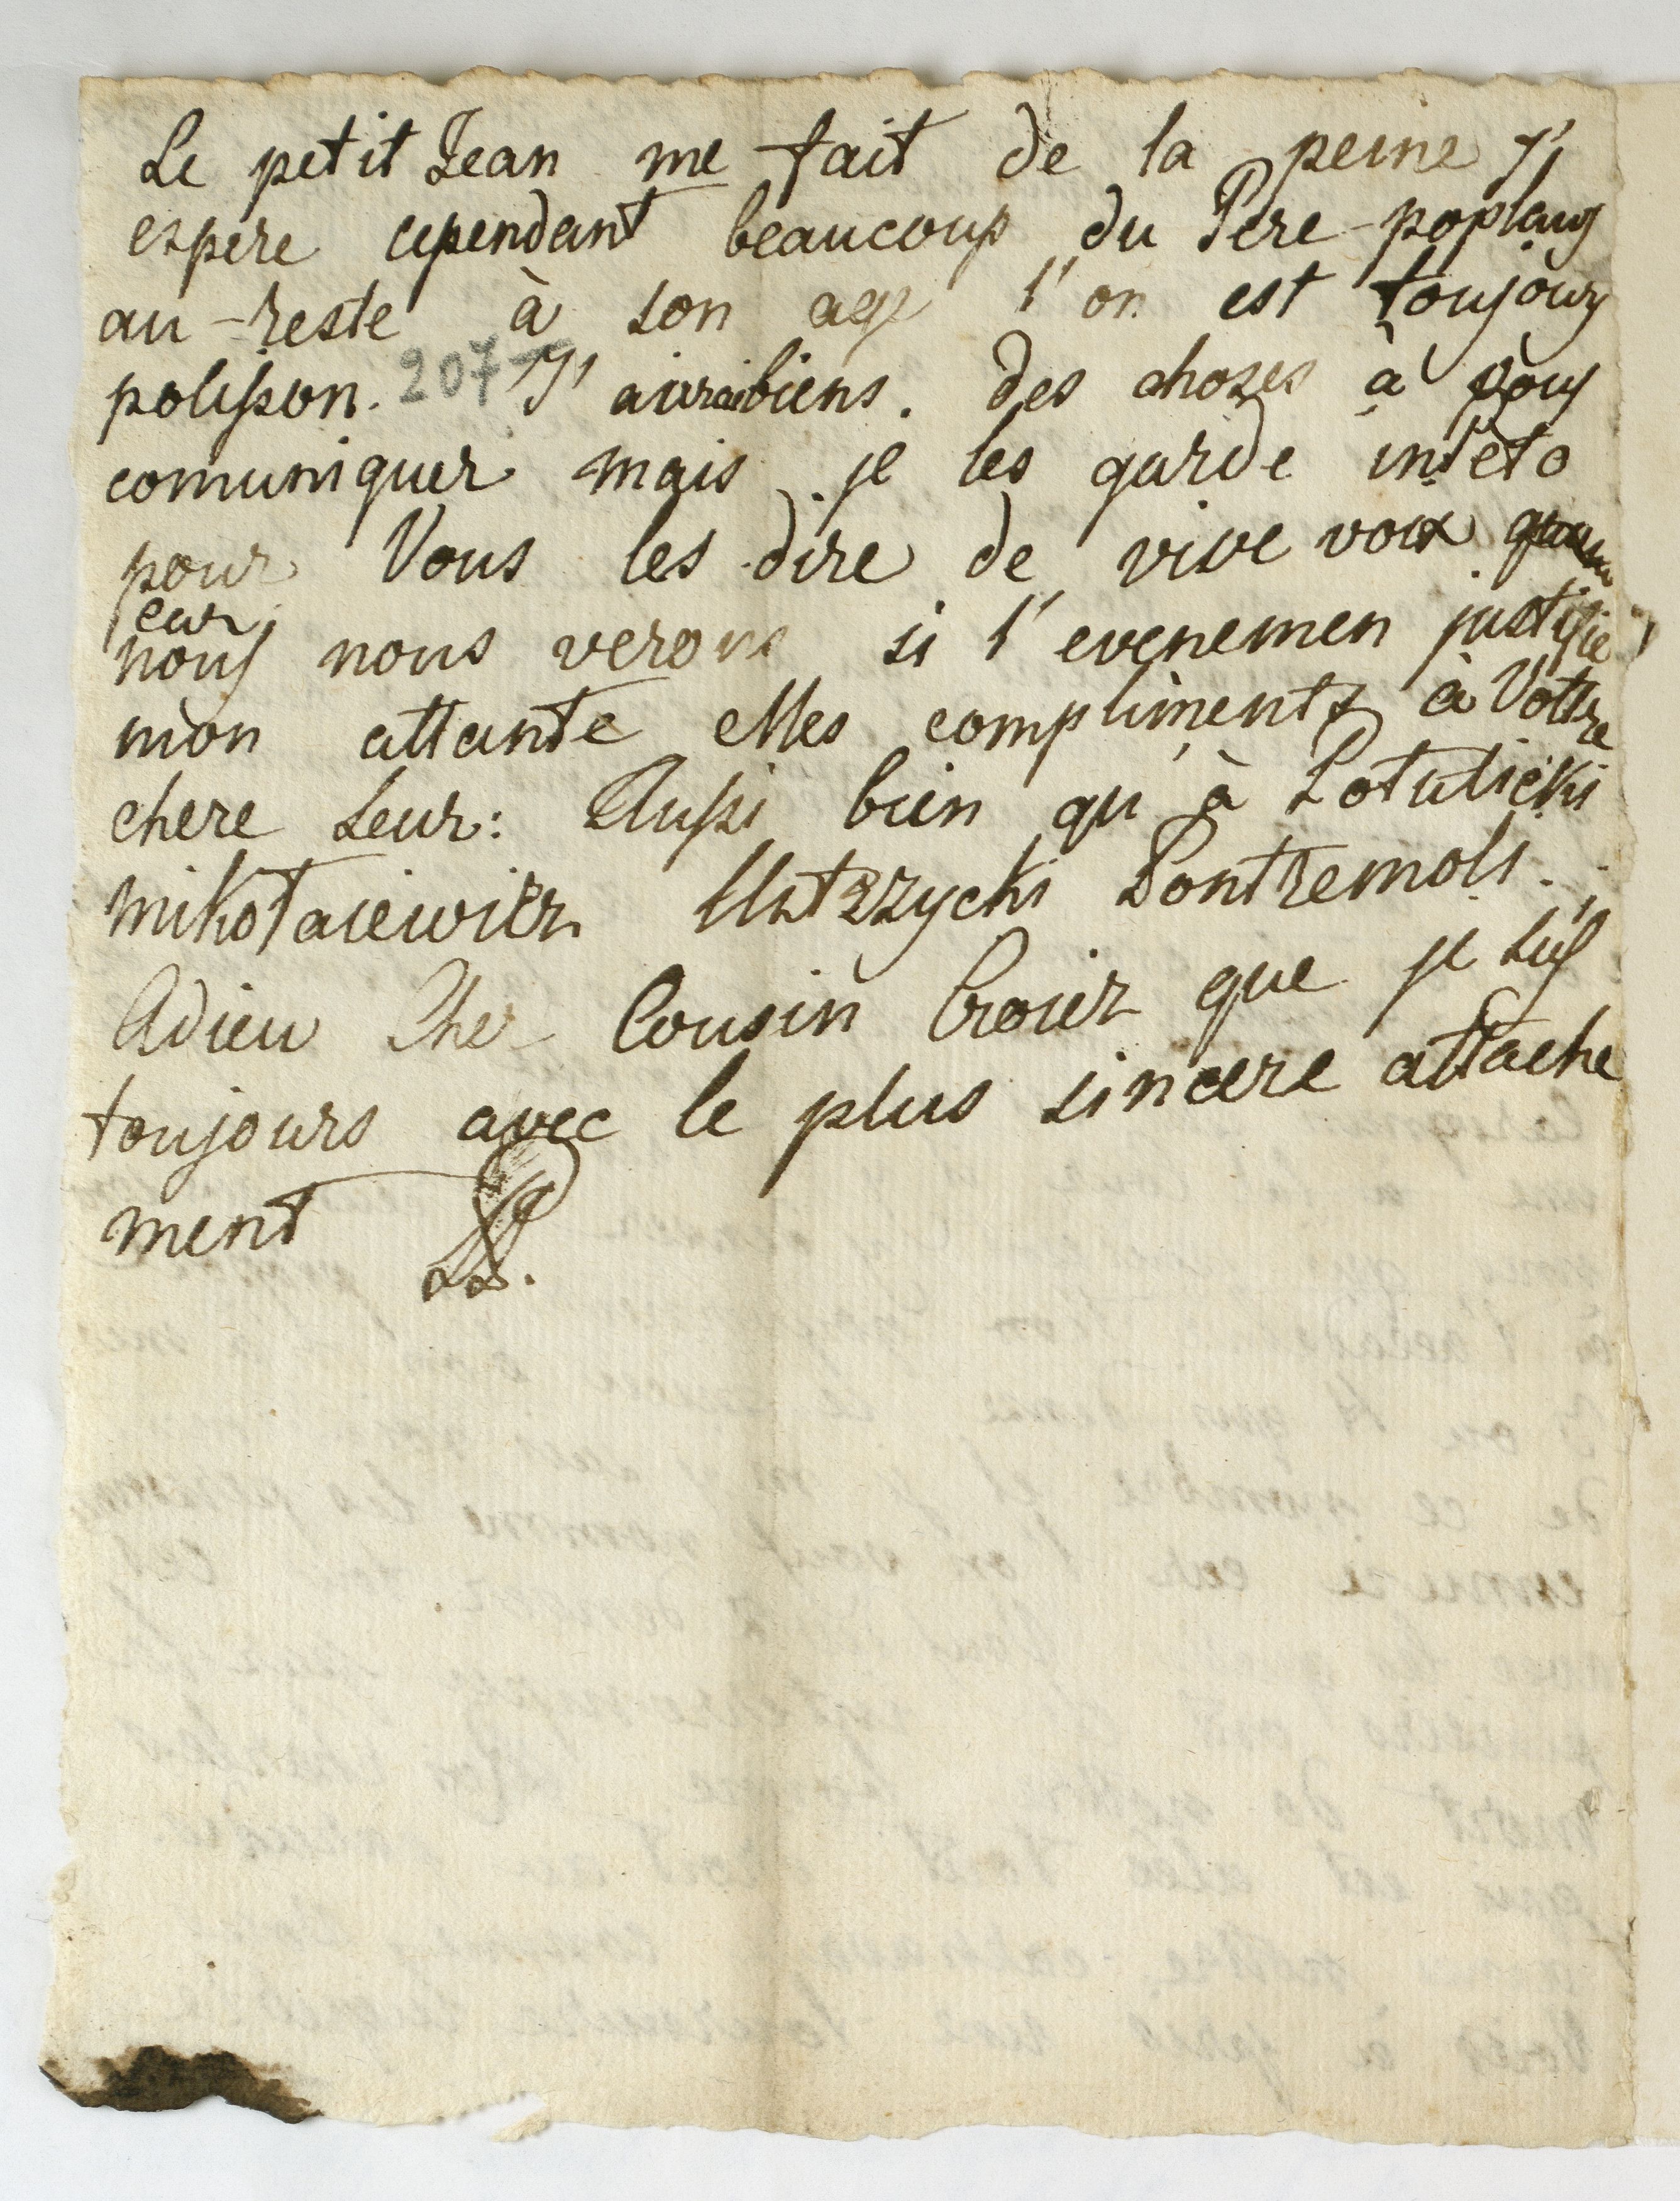 Le petit Jean me fait de la peine J'
espere cependant beaucoup du Pere poplaug
au-reste à son age l'on est toujours
polisson. 207 J' aurai biens. des choses à vous
comuniquer mais je les garde in peto
pour Vous les dire de vive voix
car
nous nous verons si l'evenemen justifie
mon attante Mes compliments à Vottre
chere Seur: Aussi bien qu à Potulicki
Mikołaiewicz Ustrzycki Pontremoli.
Adieu Cher Cousin Croiez que je suis
toujours avec le plus sincere attache
ment